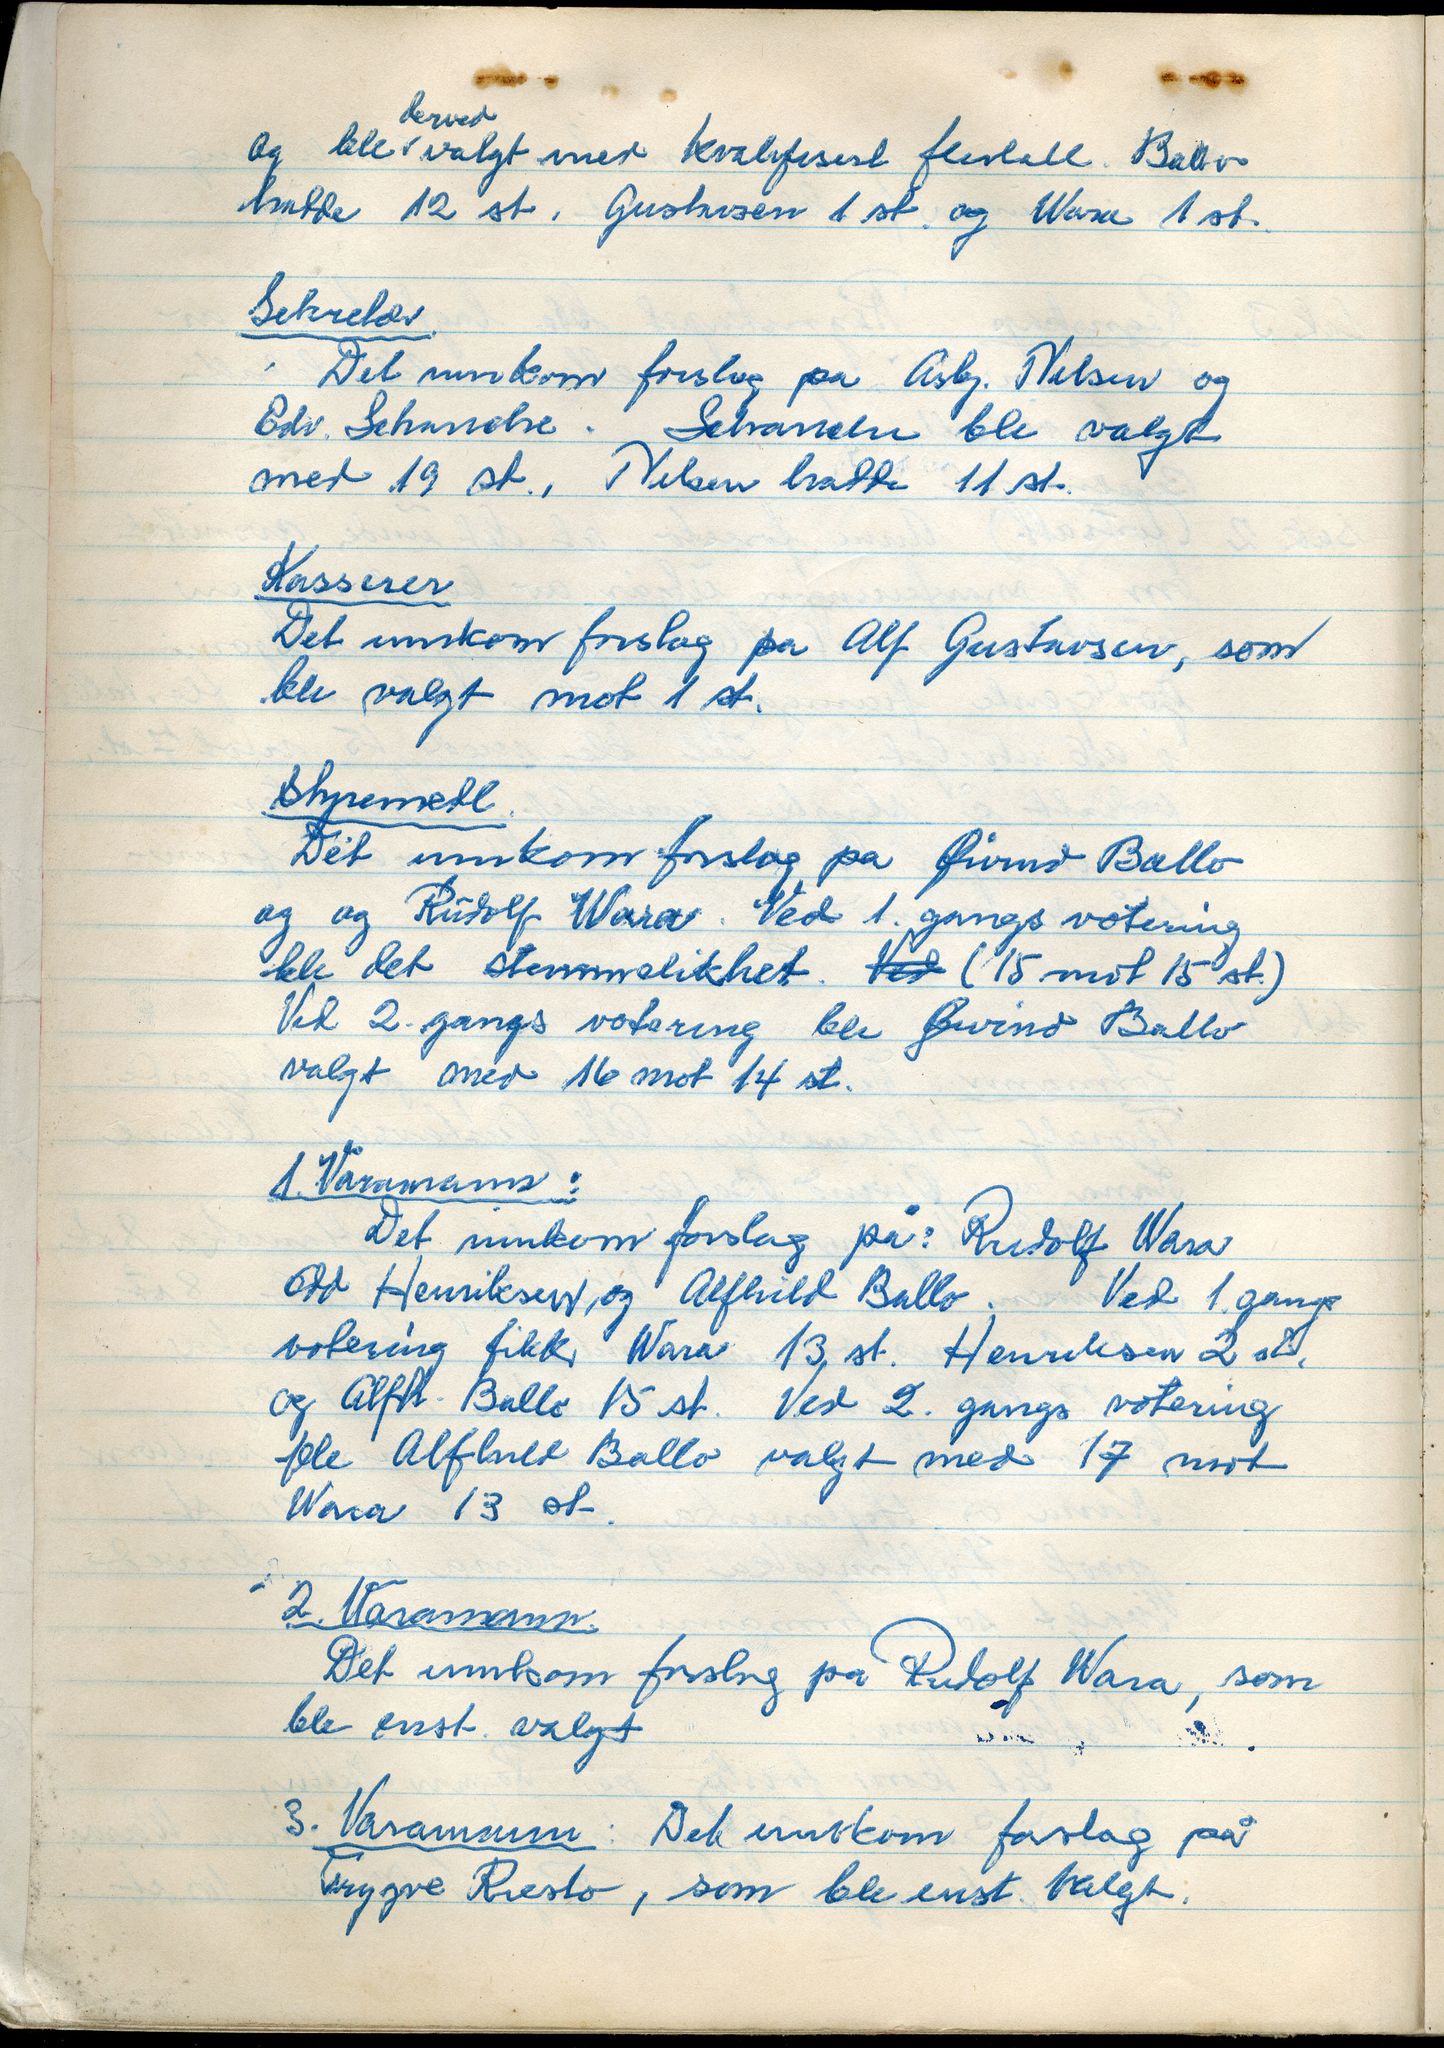 og ble derved valgt med kvalifisert flertall. Ballo
hadde 12 st. Gustavsen 1 st. og Wara 1 st.
Sekretær.
Det innkom forslag på Asbj. Nilsen og
Edv. Schanche. Schanche ble valgt
med 19 st., Nilsen hadde 11 st.
Kasserer
Det innkom forslag på Alf Gustavsen, som
ble valgt mot 1 st.
Styremedl.
Det innkom forslag på Øivind Ballo
og og Rudolf Wara. Ved 1. gangs votering
ble det stemmelikhet. Ved (15 mot 15 st.)
Ved 2. gangs votering ble Øivind Ballo
valgt med 16 mot 14 st.
1. Varamann:
Det innkom forslag på: Rudolf Wara
Odd Henriksen, og Alfhild Ballo. Ved 1. gangs
votering fikk Wara 13 st. Henriksen 2 st.
og Alfh. Ballo 15 st. Ved 2. gangs votering
ble Alfhild Ballo valgt med 17 mot
Wara 13 st.
2. Varamann.
Det innkom forslag på Rudolf Wara, som
ble enst. valgt.
3. Varamann: Det innkom forslag på
Trygve Riesto, som ble enst. valgt.